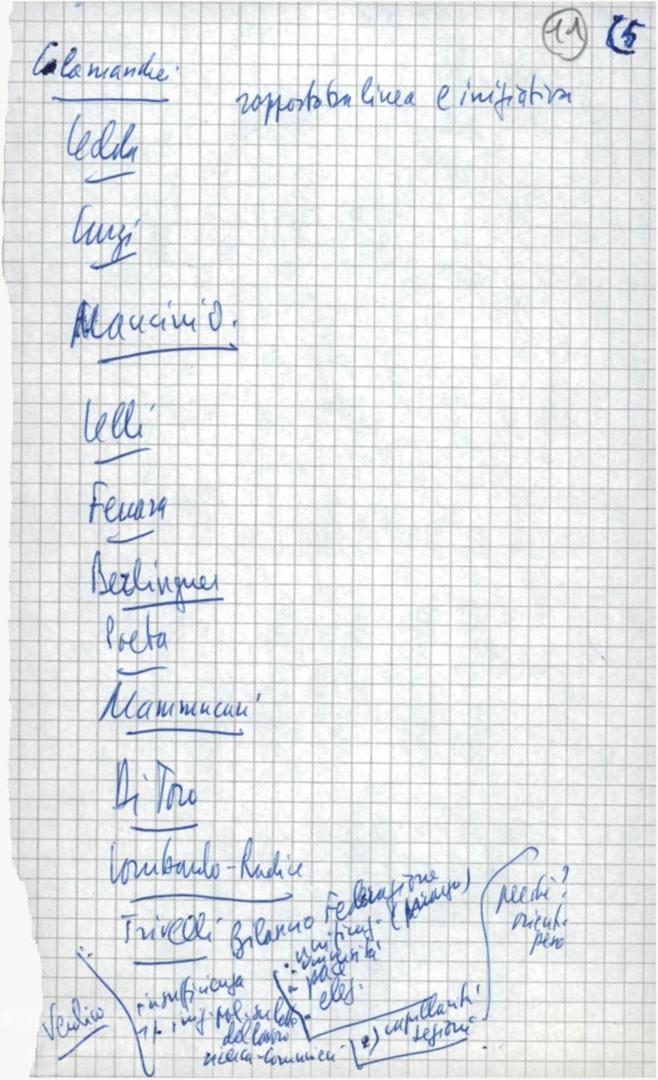 11 15
Calamandrei rapporto tra linea e iniziativa
Cedda
Curzi
Mancini O.
Lelli
Ferrara
Berlinguer
Poeta
Mammucari
Di Toro
Lombardo-Radice
Trivelli Bilancio Federazione
iniziag. (
università
pace
elez.
perché?
orient.
però
Verdico
insufficienza
iniz. pol.
del lavoro
ricerca-comunicaz
2) capillarità
sezioni